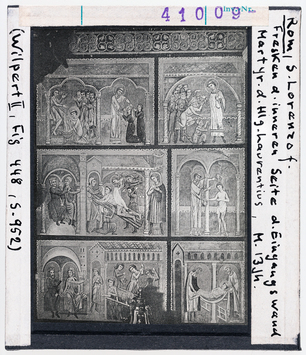 41009
Inv. Nr.
Rom, S. Lorenzo f.
Fresken d. inneren Seite d. Eingangswand
Martyr. d. Hlg. Laurentius, M. 13 Jh.
(Wilpert II, Fig 448, S. 952)